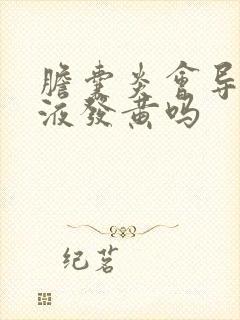 膽囊炎會导
液發黄吗
纪茗